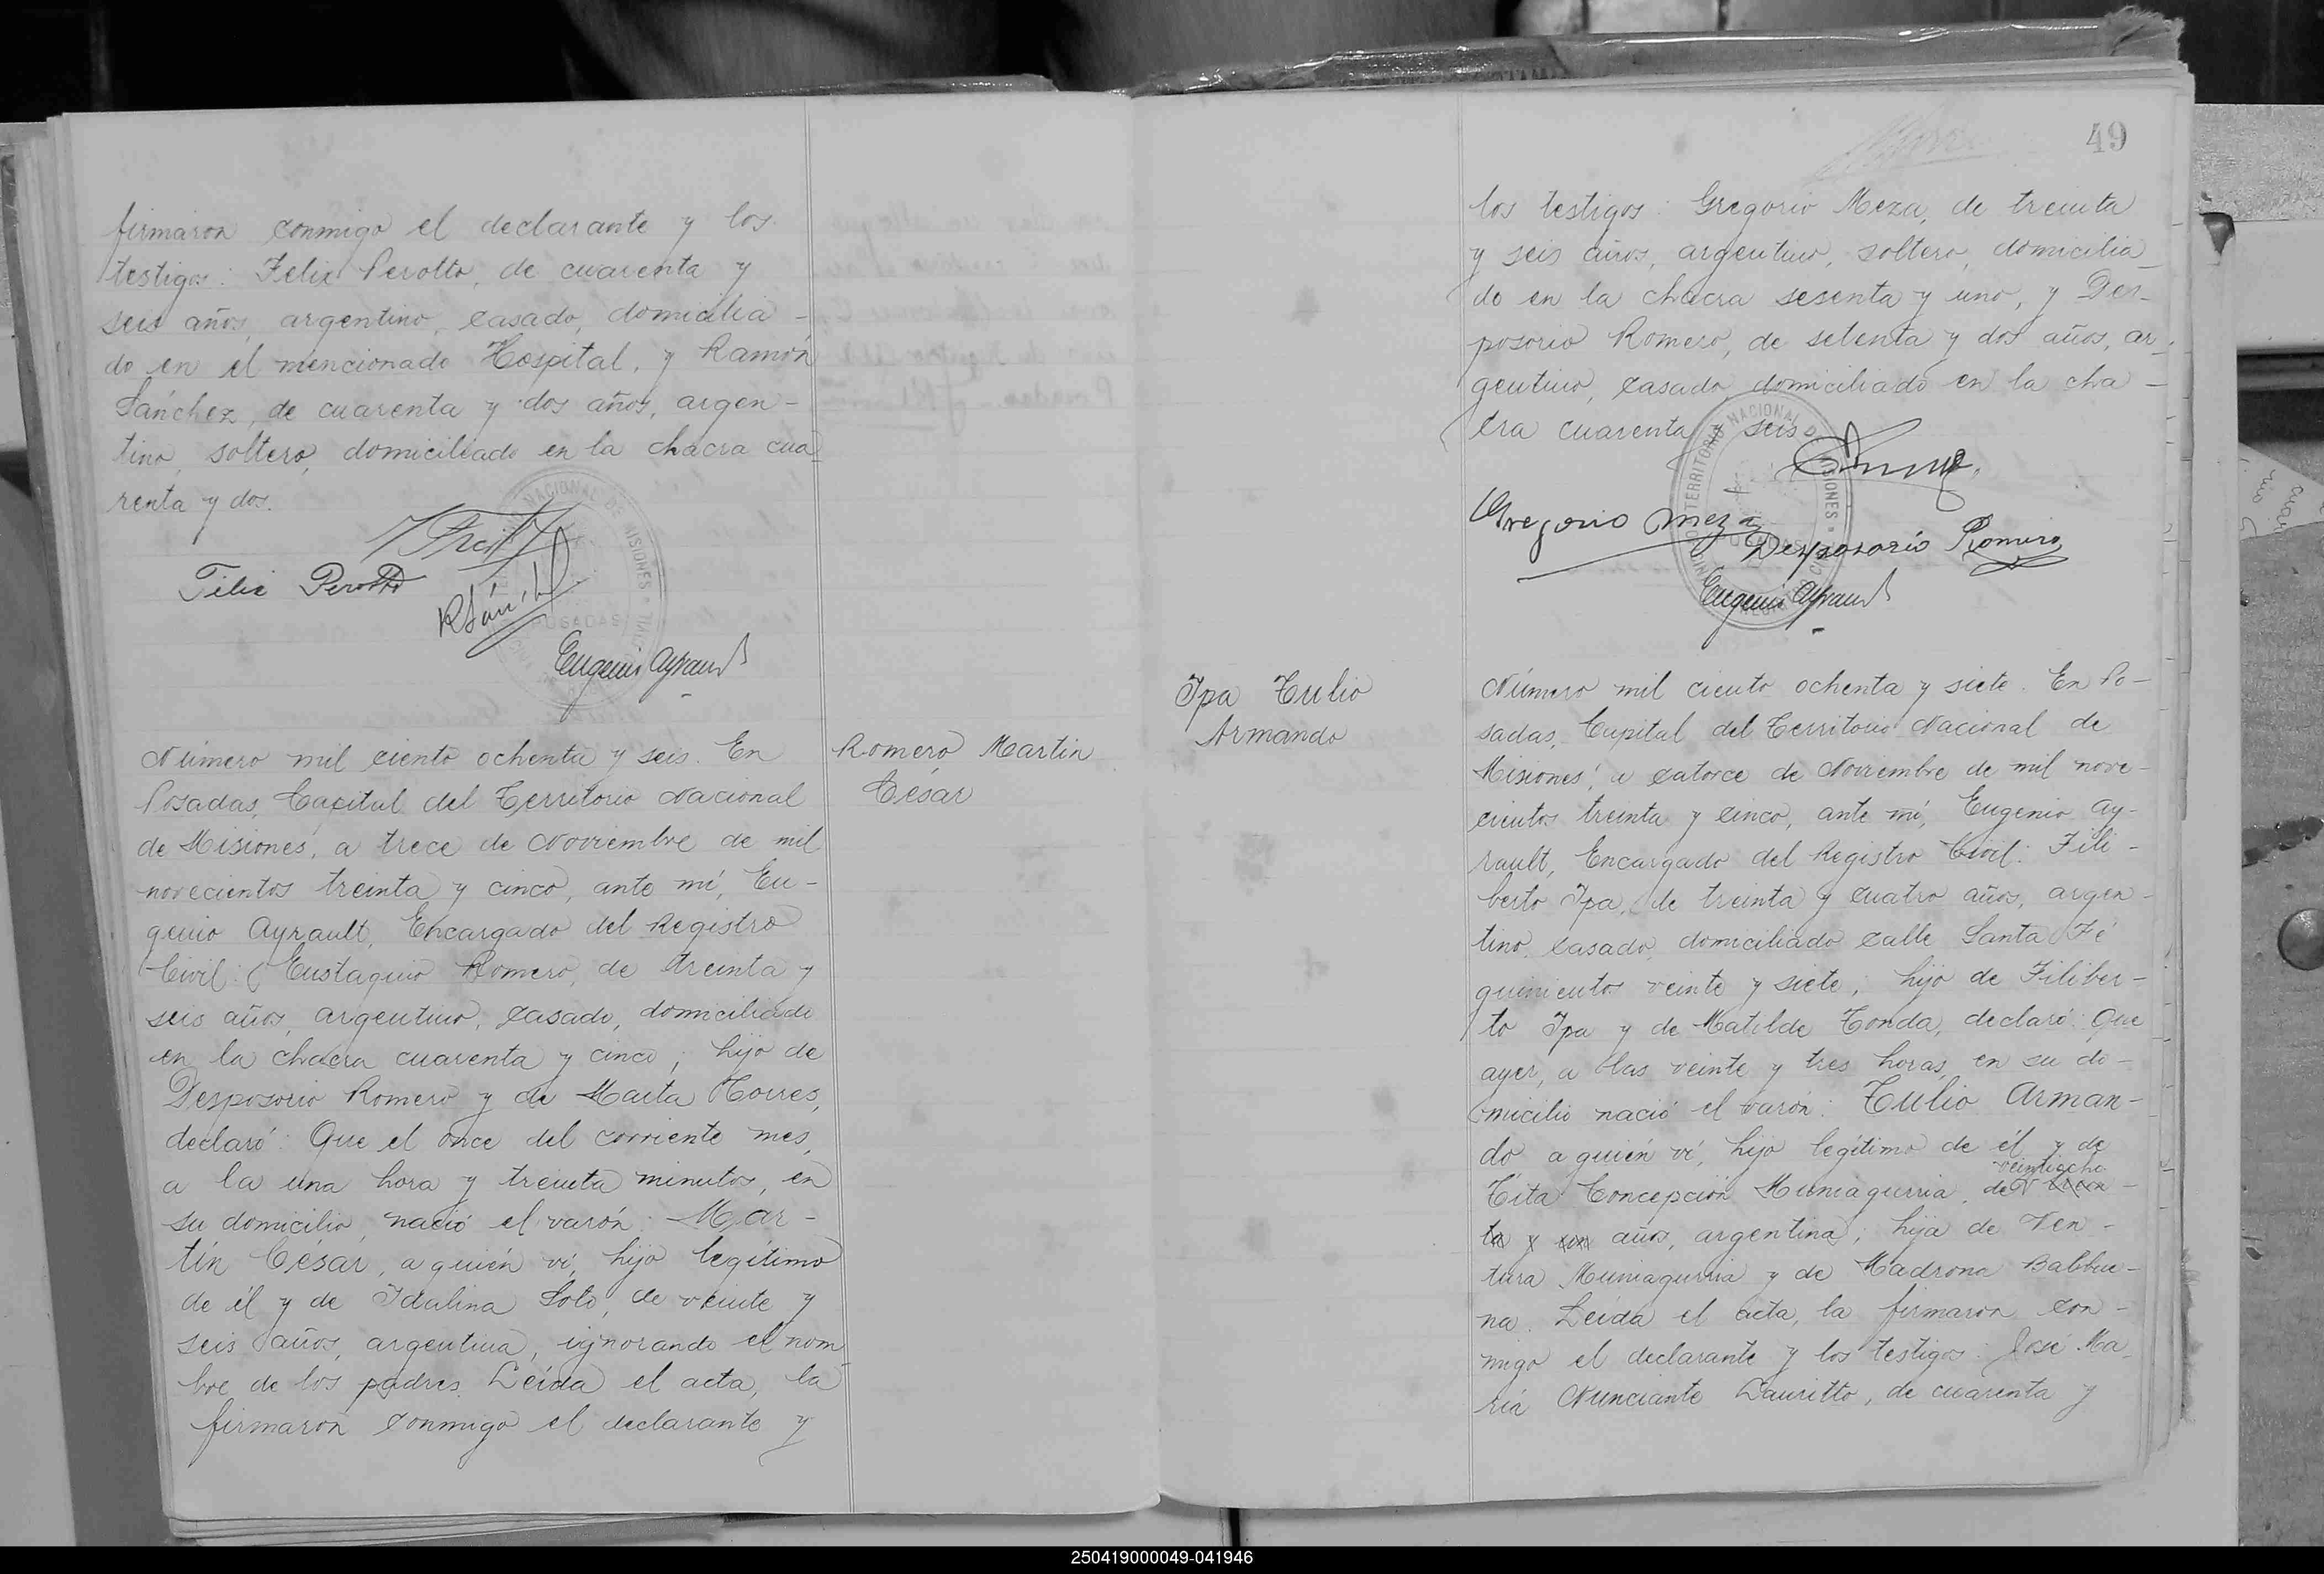 firmaron conmigo el declarante y los
testigos: Felix Perotto, de cuarenta y
seis años, argentino, casado, domicilia-
do en el mencionado Hospital, y Ramón
Sánchez, de cuarenta y dos años, argen-
tino, soltero, domiciliado en la chacra cua-
renta y dos.
Felix Perotto
RSánch
Eugenio Ayrault
TERRITORIO NACIONAL DE MISIONES
POSADAS
Número mil ciento ochenta y seis. En
Posadas, Capital del Territorio Nacional
de Misiones, a trece de Noviembre de mil
novecientos treinta y cinco, ante mí, Eu-
genio Ayrault, Encargado del Registro
Civil: Eustaquio Romero, de treinta y
seis años, argentino, casado, domiciliado
en la chacra cuarenta y cinco; hijo de
Desposorio Romero y de Marta Torres,
declaró: Que el once del corriente mes,
a la una hora y treinta minutos, en
su domicilio, nació el varón: Mar-
tín César, a quién ví, hijo legítimo
de él y de Idalina Soto, de veinte y
seis años, argentina, ignorando el nom-
bre de los padres. Leída el acta, la
firmaron conmigo el declarante y
Romero Martin
César
49
los testigos: Gregorio Meza, de treinta
y seis años, argentino, soltero, domicilia-
do en la chacra sesenta y uno, y Des-
posorio Romero, de setenta y dos años, ar-
gentino, casado, domiciliado en la cha-
cra cuarenta y seis
Gregorio Meza
Desposorio Romero
Eugenio Ayrault
TERRITORIO NACIONAL DE MISIONES
POSADAS
Ipa Tulio
Armando
Número mil ciento ochenta y siete. En Po-
sadas, Capital del Territorio Nacional de
Misiones, a catorce de Noviembre de mil nove-
cientos treinta y cinco, ante mí, Eugenio Ay-
rault, Encargado del Registro Civil: Fili-
berto Ipa, de treinta y cuatro años, argen-
tino, casado, domiciliado calle Santa Fé
quinientos veinte y siete; hijo de Filiber-
to Ipa y de Matilde Tonda, declaró: Que
ayer, a las veinte y tres horas, en su do-
micilio nació el varón: Tulio Arman-
do a quién ví, hijo legítimo de él y de
veintiocho
Tita Concepción Muniagurria, de trein-
ta y un años, argentina; hija de Ven-
tura Muniagurria y de Madrona Balbue-
na. Leída el acta, la firmaron con-
migo el declarante y los testigos: José Ma-
ría Nunciante Lauritto, de cuarenta y
250419000049-041946